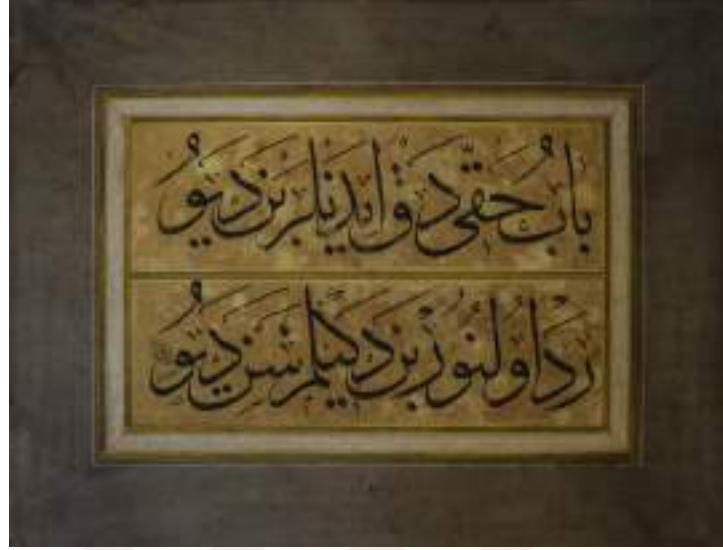 باب حقى دق ايدنلر بن ديو
رد اولنور بن دكلم سن ديو